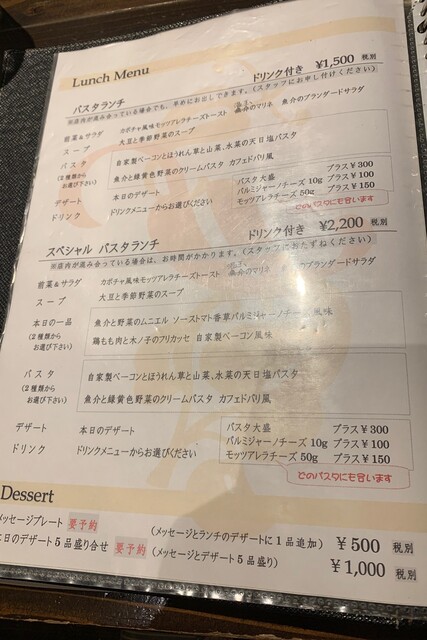 Lunch Menu
パスタランチ ドリンク付き ¥1,500 税別
※店内が混み合っている場合でも、早めにお出しできます。(スタッフにお申し付けください)
前菜&サラダ カボチャ風味モッツアレラチーズトースト 魚介のマリネ 魚介のブランダードサラダ
スープ 大豆と季節野菜のスープ
パスタ 自家製ベーコンとほうれん草と山菜、水菜の天日塩パスタ
(2種類から
お選び下さい) 魚介と緑黄色野菜のクリームパスタ カフェドパリ風
デザート 本日のデザート
ドリンク ドリンクメニューからお選びください
パスタ大盛 プラス¥300
パルミジャーノチーズ 10g プラス¥100
モッツアレラチーズ 50g プラス¥150
どのパスタにも合います
スペシャル パスタランチ ドリンク付き ¥2,200 税別
※店内が混み合っている場合は、お時間がかかります。(スタッフにおたずねください)
前菜&サラダ カボチャ風味モッツアレラチーズトースト 魚介のマリネ 魚介のブランダードサラダ
スープ 大豆と季節野菜のスープ
本日の一品 魚介と野菜のムニエル ソーストマト香草パルミジャーノチーズ風味
(2種類から
お選び下さい) 鶏もも肉と木ノ子のフリカッセ 自家製ベーコン風味
パスタ 自家製ベーコンとほうれん草と山菜、水菜の天日塩パスタ
(2種類から
お選び下さい) 魚介と緑黄色野菜のクリームパスタ カフェドパリ風
デザート 本日のデザート
ドリンク ドリンクメニューからお選びください
パスタ大盛 プラス¥300
パルミジャーノチーズ 10g プラス¥100
モッツアレラチーズ 50g プラス¥150
どのパスタにも合います
Dessert
メッセージプレート 要予約 (メッセージとランチのデザートに1品追加) ¥500 税別
本日のデザート5品盛り合せ 要予約 (メッセージとデザート5品盛り) ¥1,000 税別